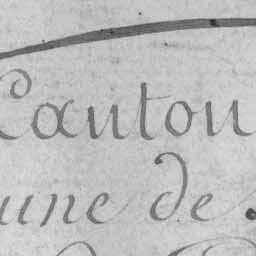 Canton
une de